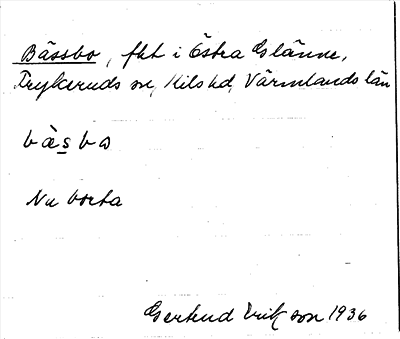 Bässbo, fht i Östra Glänne,
Frykeruds sn, Kils hd, Värmlands län
bàsbω
Nu borta
Gertrud Eriksson 1936